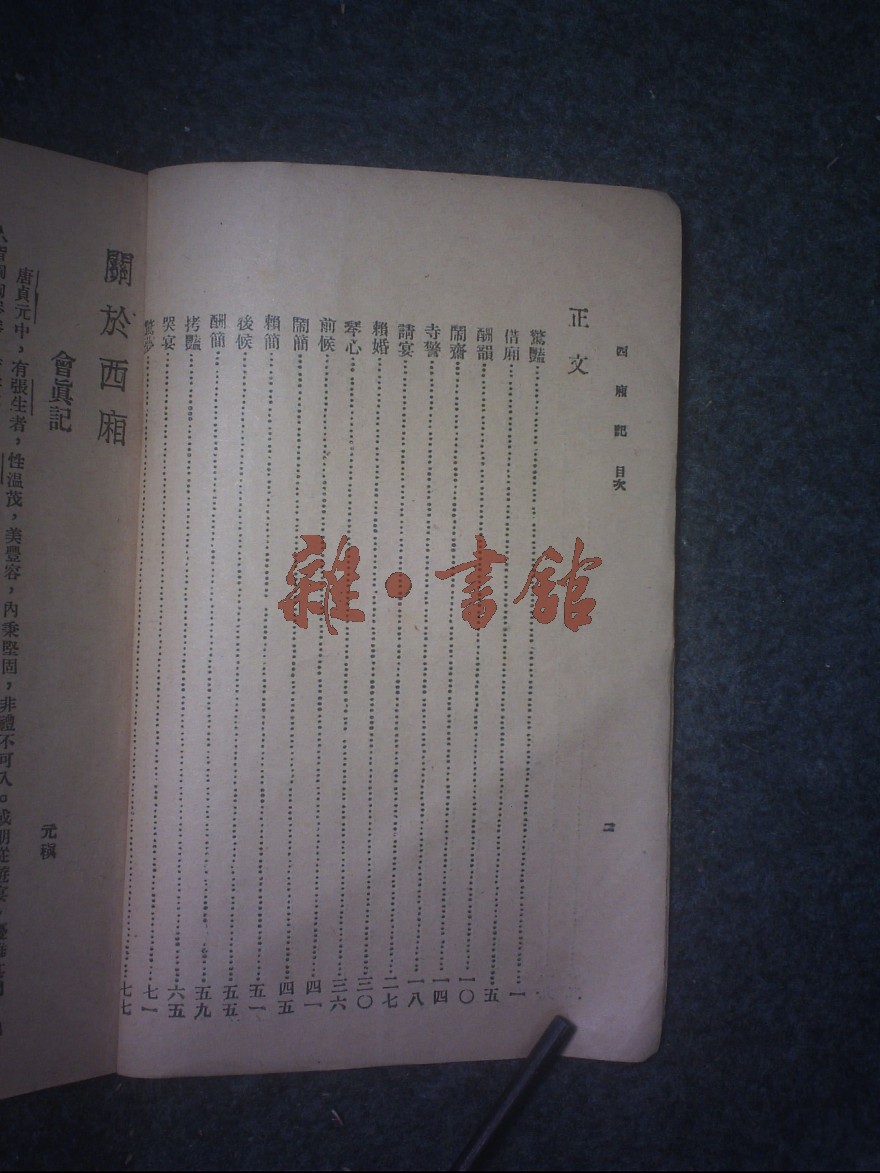 西廂記 目次
二
正文
驚豔……一
借廂……五
酬韻……一〇
鬧齋……一四
寺警……一八
請宴……二七
賴婚……三〇
琴心……三六
前候……四一
鬧簡……四五
賴簡……五一
後候……五五
酬簡……五九
拷豔……六五
哭宴……七一
驚夢……七七
關於西廂
會眞記
元稹
唐貞元中，有張生者，性溫茂，美豐容，內秉堅固，非禮不可入。或朋從遊宴，
雜·書館